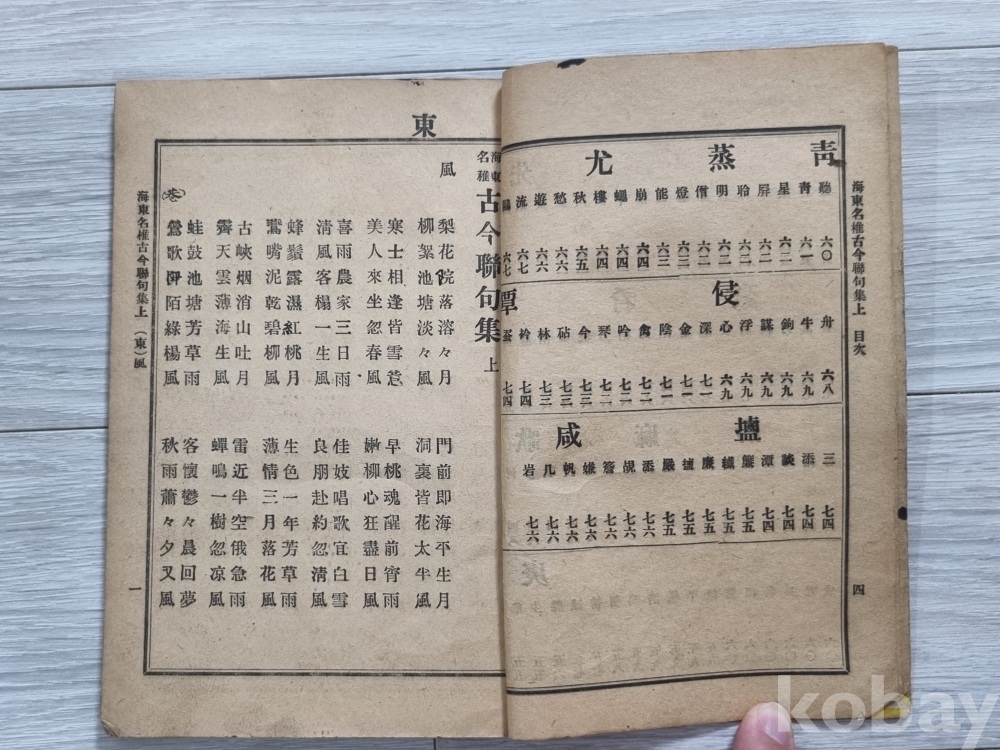 海東名椎古今聯句集上 目次
四
靑 蒸 尤
聽 六〇
靑 六一
星 六二
屛 六二
聆 六二
明 六二
僧 六二
燈 六三
能 六三
崩 六四
蠅 六四
樓 六四
秋 六五
愁 六六
遊 六六
流 六七
六七
侵 覃
舟 六八
牛 六九
鉤 六九
謀 六九
浮 六九
心 六九
深 七一
金 七一
陰 七一
禽 七二
吟 七二
琴 七二
今 七三
砧 七三
林 七三
衿 七四
蚕 七四
鹽 咸
三 七四
添 七四
談 七四
潭 七四
簾 七五
纎 七五
廉 七五
七五
嚴 七五
添 七六
覘 七六
簷 七六
嫌 七六
帆 七六
几 七六
岩 七六
東
海東名稚 古今聯句集 上
風
梨花院落溶々月 門前即海平生月
柳絮池塘淡々風 洞裏皆花太半風
寒士相逢皆雪 早桃魂醒前宵雨
美人來坐忽春風 嫩柳心狂盡日風
喜雨農家三日雨 佳妓唱歌宜白雪
清風客榻一生風 良朋赴約忽清風
蜂鬚露濕紅桃月 生色一年芳草雨
鷰嘴泥乾碧柳風 薄情三月落花風
古峽烟消山吐月 雷近半空俄急雨
霽天雲薄海生風 蟬鳴一樹忽凉風
蛙鼓池塘芳草雨 客懷鬱々晨回夢
鶯歌伊陌綠楊風 秋雨蕭々夕又風
海東名椎古今聯句集上 (東)風
一
kobay